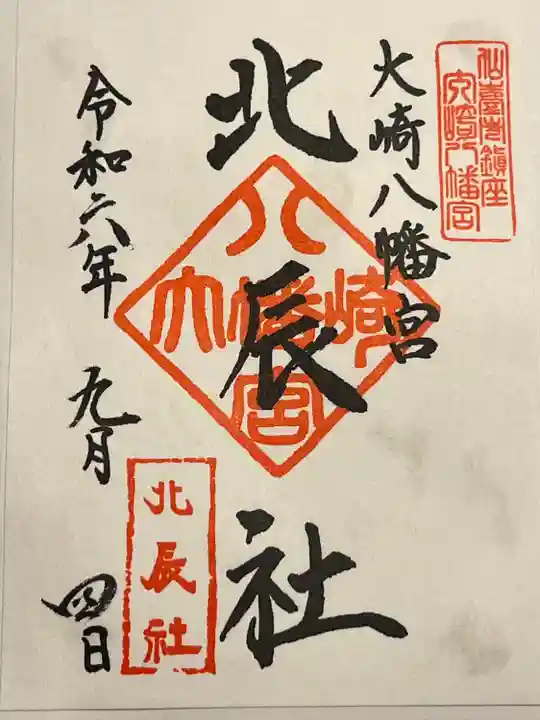 仙臺市鎮座
大崎八幡宮
大崎八幡宮
北辰社
八
大幡崎
宮
令和六年 九月 四日
北辰社